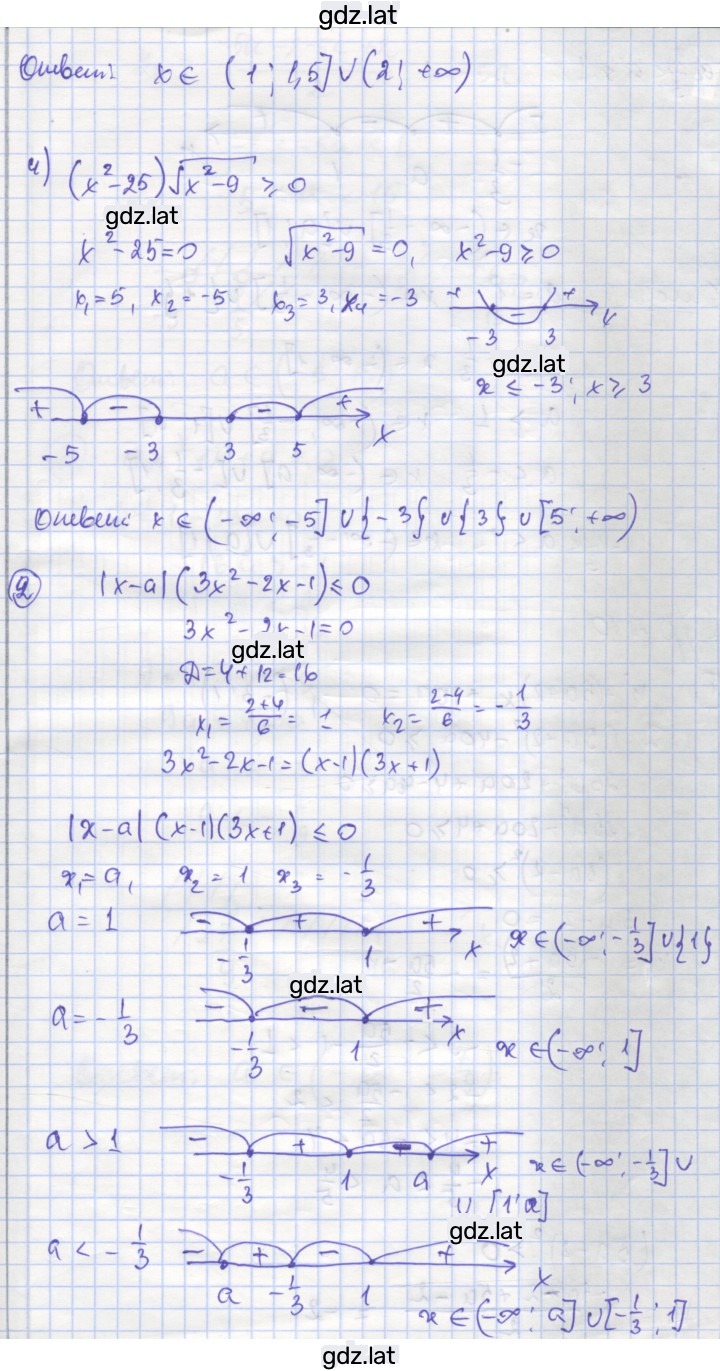 gdz.lat
Ответ: x ∈ (1; 1,5] ∪ (2; +∞)
4) (x²-25)√(x²-9) ≥ 0
gdz.lat
x²-25=0 √(x²-9) = 0, x²-9 ≥ 0
x₁=5, x₂=-5 x₃=3, x₄=-3 + - + x
-3 3
gdz.lat
x ≤ -3; x ≥ 3
+ - - + x
-5 -3 3 5
Ответ: x ∈ (-∞; -5] ∪ {-3} ∪ {3} ∪ [5; +∞)
2 |x-a|(3x²-2x-1) ≤ 0
3x²-2x-1=0
gdz.lat
D=4+12=16
x₁ = (2+4)/6 = 1 x₂ = (2-4)/6 = -1/3
3x²-2x-1=(x-1)(3x+1)
|x-a|(x-1)(3x+1) ≤ 0
x₁=a, x₂=1 x₃=-1/3
a=1 - + + x x∈(-∞; -1/3] ∪ {1}
-1/3 1
gdz.lat
a=-1/3 - - + x x∈(-∞; 1]
-1/3 1
a>1 - + - + x x∈(-∞; -1/3] ∪
-1/3 1 a
∪ [1; a]
gdz.lat
a<-1/3 - + - + x
a -1/3 1
x∈(-∞; a] ∪ [-1/3; 1]
gdz.lat